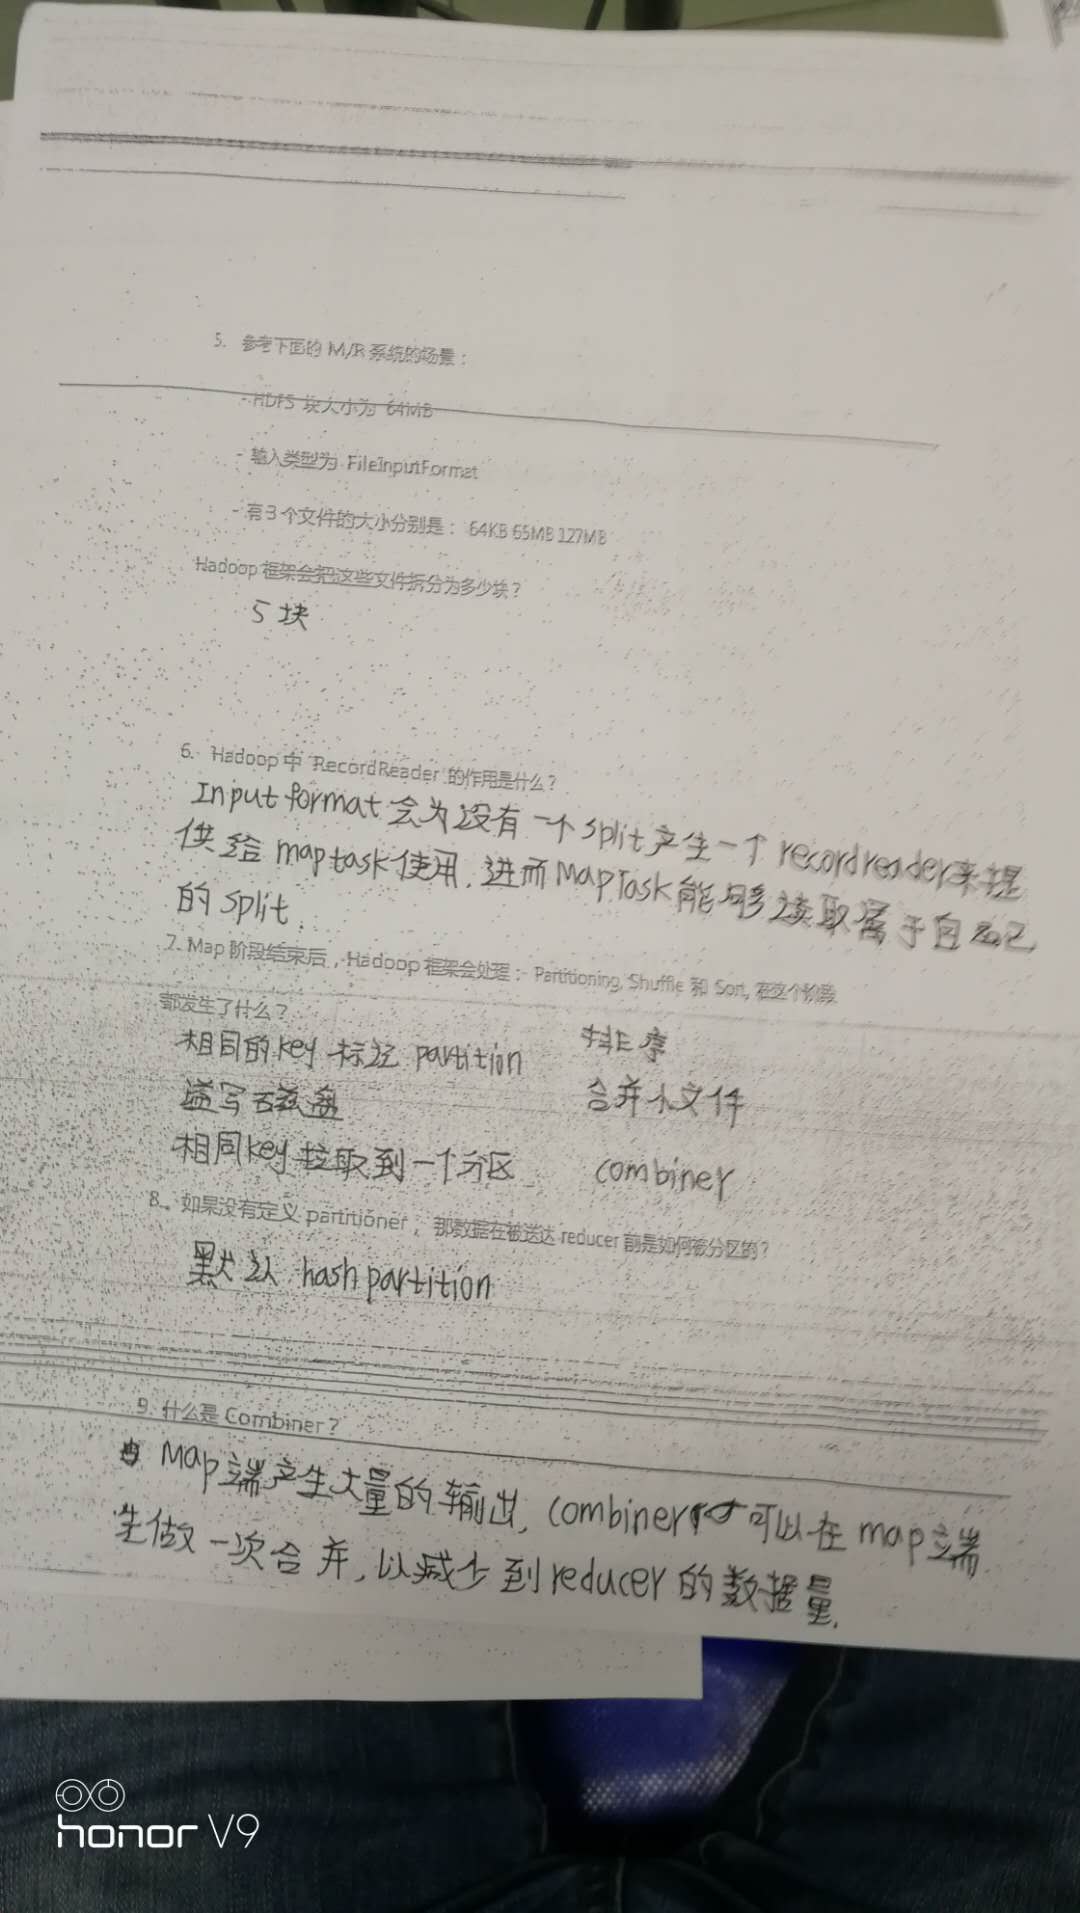 5. 参考下面的 M/R 系统的场景：
- HDFS 块大小为 64MB
- 输入类型为 FileInputFormat
- 有3个文件的大小分别是： 64KB 65MB 127MB
Hadoop 框架会把这些文件拆分为多少块？
5 块
6. Hadoop 中 RecordReader 的作用是什么？
Input format 会为没有一个 split 产生一个 recordreader来提
供给 maptask使用，进而MapTask能够读取属于自己
的 split.
7. Map 阶段结束后，Hadoop 框架会处理： Partitioning, Shuffle 和 Sort, 在这个阶段
都发生了什么？
相同的key 标记 partition 排序
溢写磁盘 合并小文件
相同key 拉取到一个分区 combiner
8. 如果没有定义 partitioner， 那数据在被送达 reducer 前是如何被分区的？
默认 hash partition
9. 什么是 Combiner？
Map端产生大量的输出, combiner 可以在 map端
先做一次合并, 以减少到reducer 的数据量.
honor V9